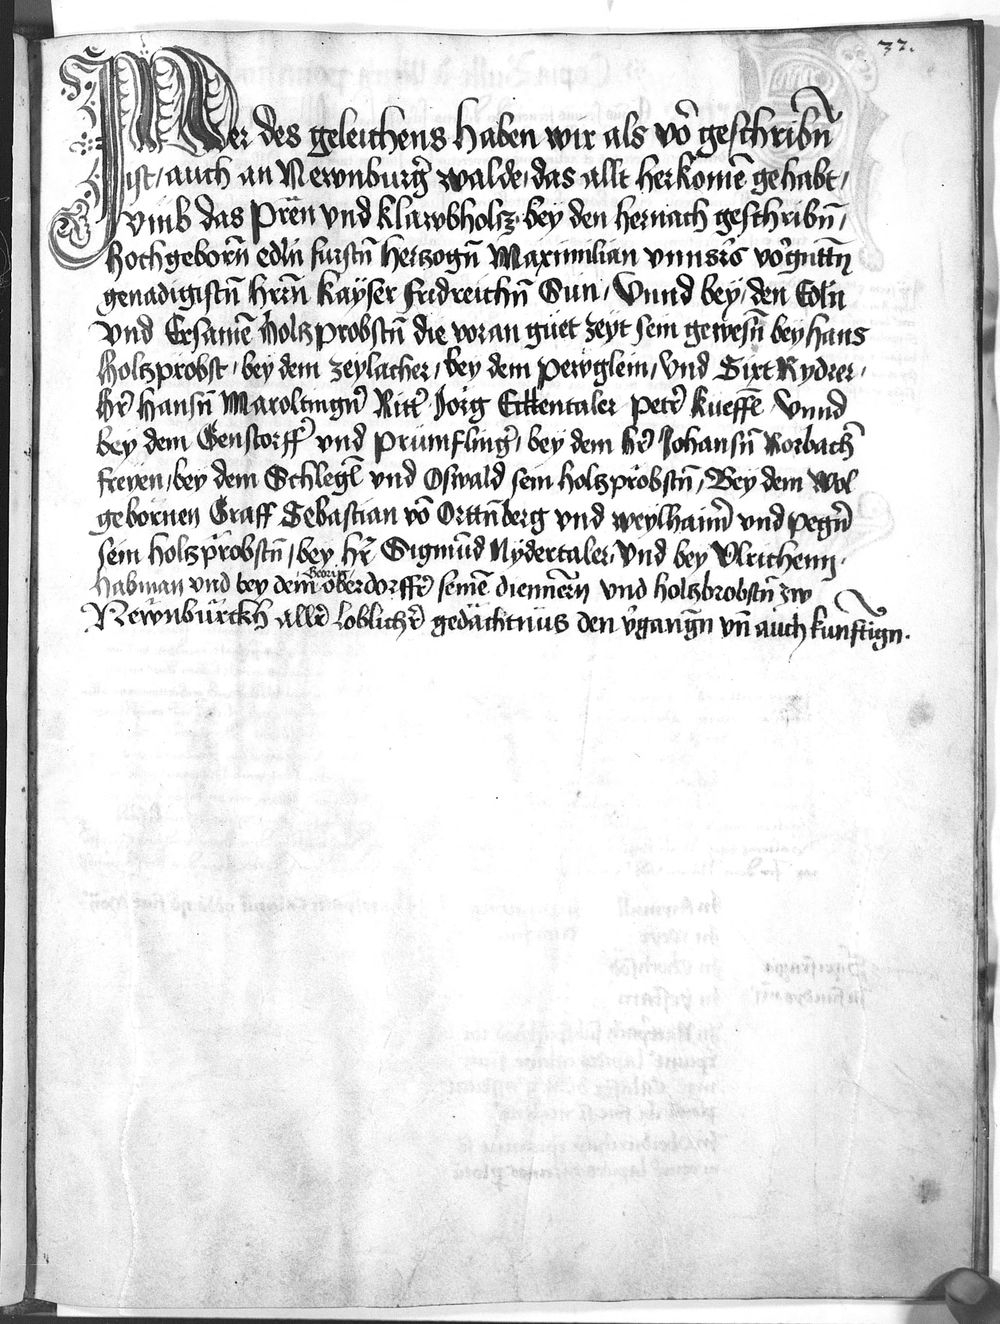 32.
Mer des geleichens haben wir als vor̄ geschribn̄
ist / auch an Newnburg̉ walde / das allt herkomē gehabt /
vmb das Prēn vnd klawbholtz · bey den hernach geschribn̄ /
hochgeborn̄ edln̄ furstn̄ hertzogn̄ Maximilian vnnsrs̄ vor̉guttn̄
genadigistn̄ hrrn̄ kayser fridreichn̄ Sun / Vnnd bey / den Edln̄
vnd Ersamē holtzprobstn̄ die voran guet zeyt sein gewesn̄ bey hans
holtzprobst / bey dem zeylacher / bey dem peryglein / vnd Sixt Rydrer ·
hr̄ hansn̄ Maroltingn̉ Ritt̉ Jorg Ekkentaler petr̉ kueffē Vnnd
bey dem Genstorff̉ vnd prumfling̉ / bey dem hr̄ Johansn̄ Rorbach̉
freyen / bey dem Schlegl̄ vnd Oswald sein holtzprobstn̄ / Bey dem Wol
gebornen Graff Sebastian vō Orttn̄berg vnd weylhaim̄ vnd pegn̄
sein holtzprobstn̄ / bey hr̄ Sigmūd Nydertaler / vnd bey Vlrichenn ·
habman vnd bey dem Georig oberdorffr̉ seinē diennērn vnd holtzbrobstn̄ zw
Newnbürckh allr̉ loblichr̉ gedächtnüs den v̉gangn̄ vn̄ auch kunftign ·